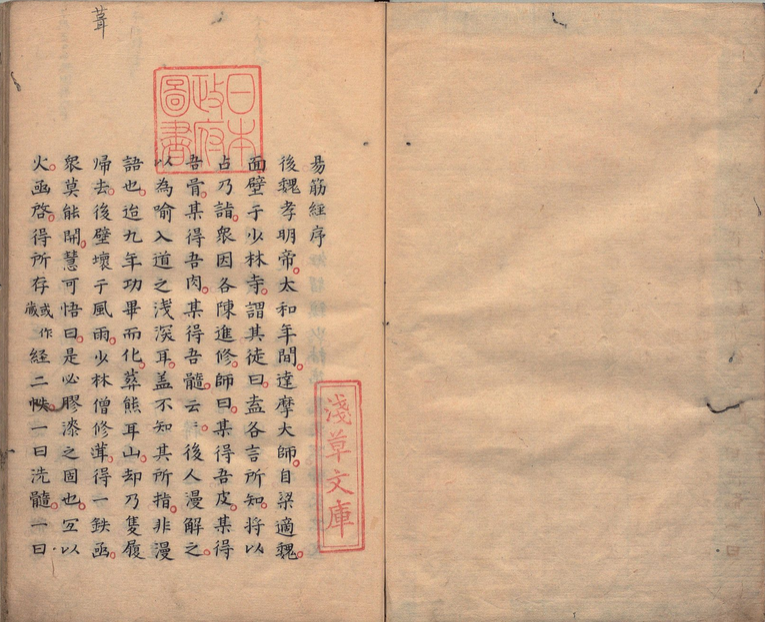 易筋經序
後魏孝明帝太和年間達摩大師自梁適魏
面壁于少林寺謂其徒曰盍各言所知將以
占乃詣衆因各陳進修師曰某得吾皮某得
吾骨某得吾肉某得吾髓云〻後人漫解之
以為喻入道之浅深耳盖不知其所指非漫
語也迨九年功畢而化葬熊耳山却乃隻履
歸去後壁壞于風雨少林僧修葺得一鉄函
衆莫能開慧可悟曰是必膠漆之固也冝以
火函啓得所存或作藏経二帙一曰洗髓一曰
葺
日本政府圖書
淺草文庫